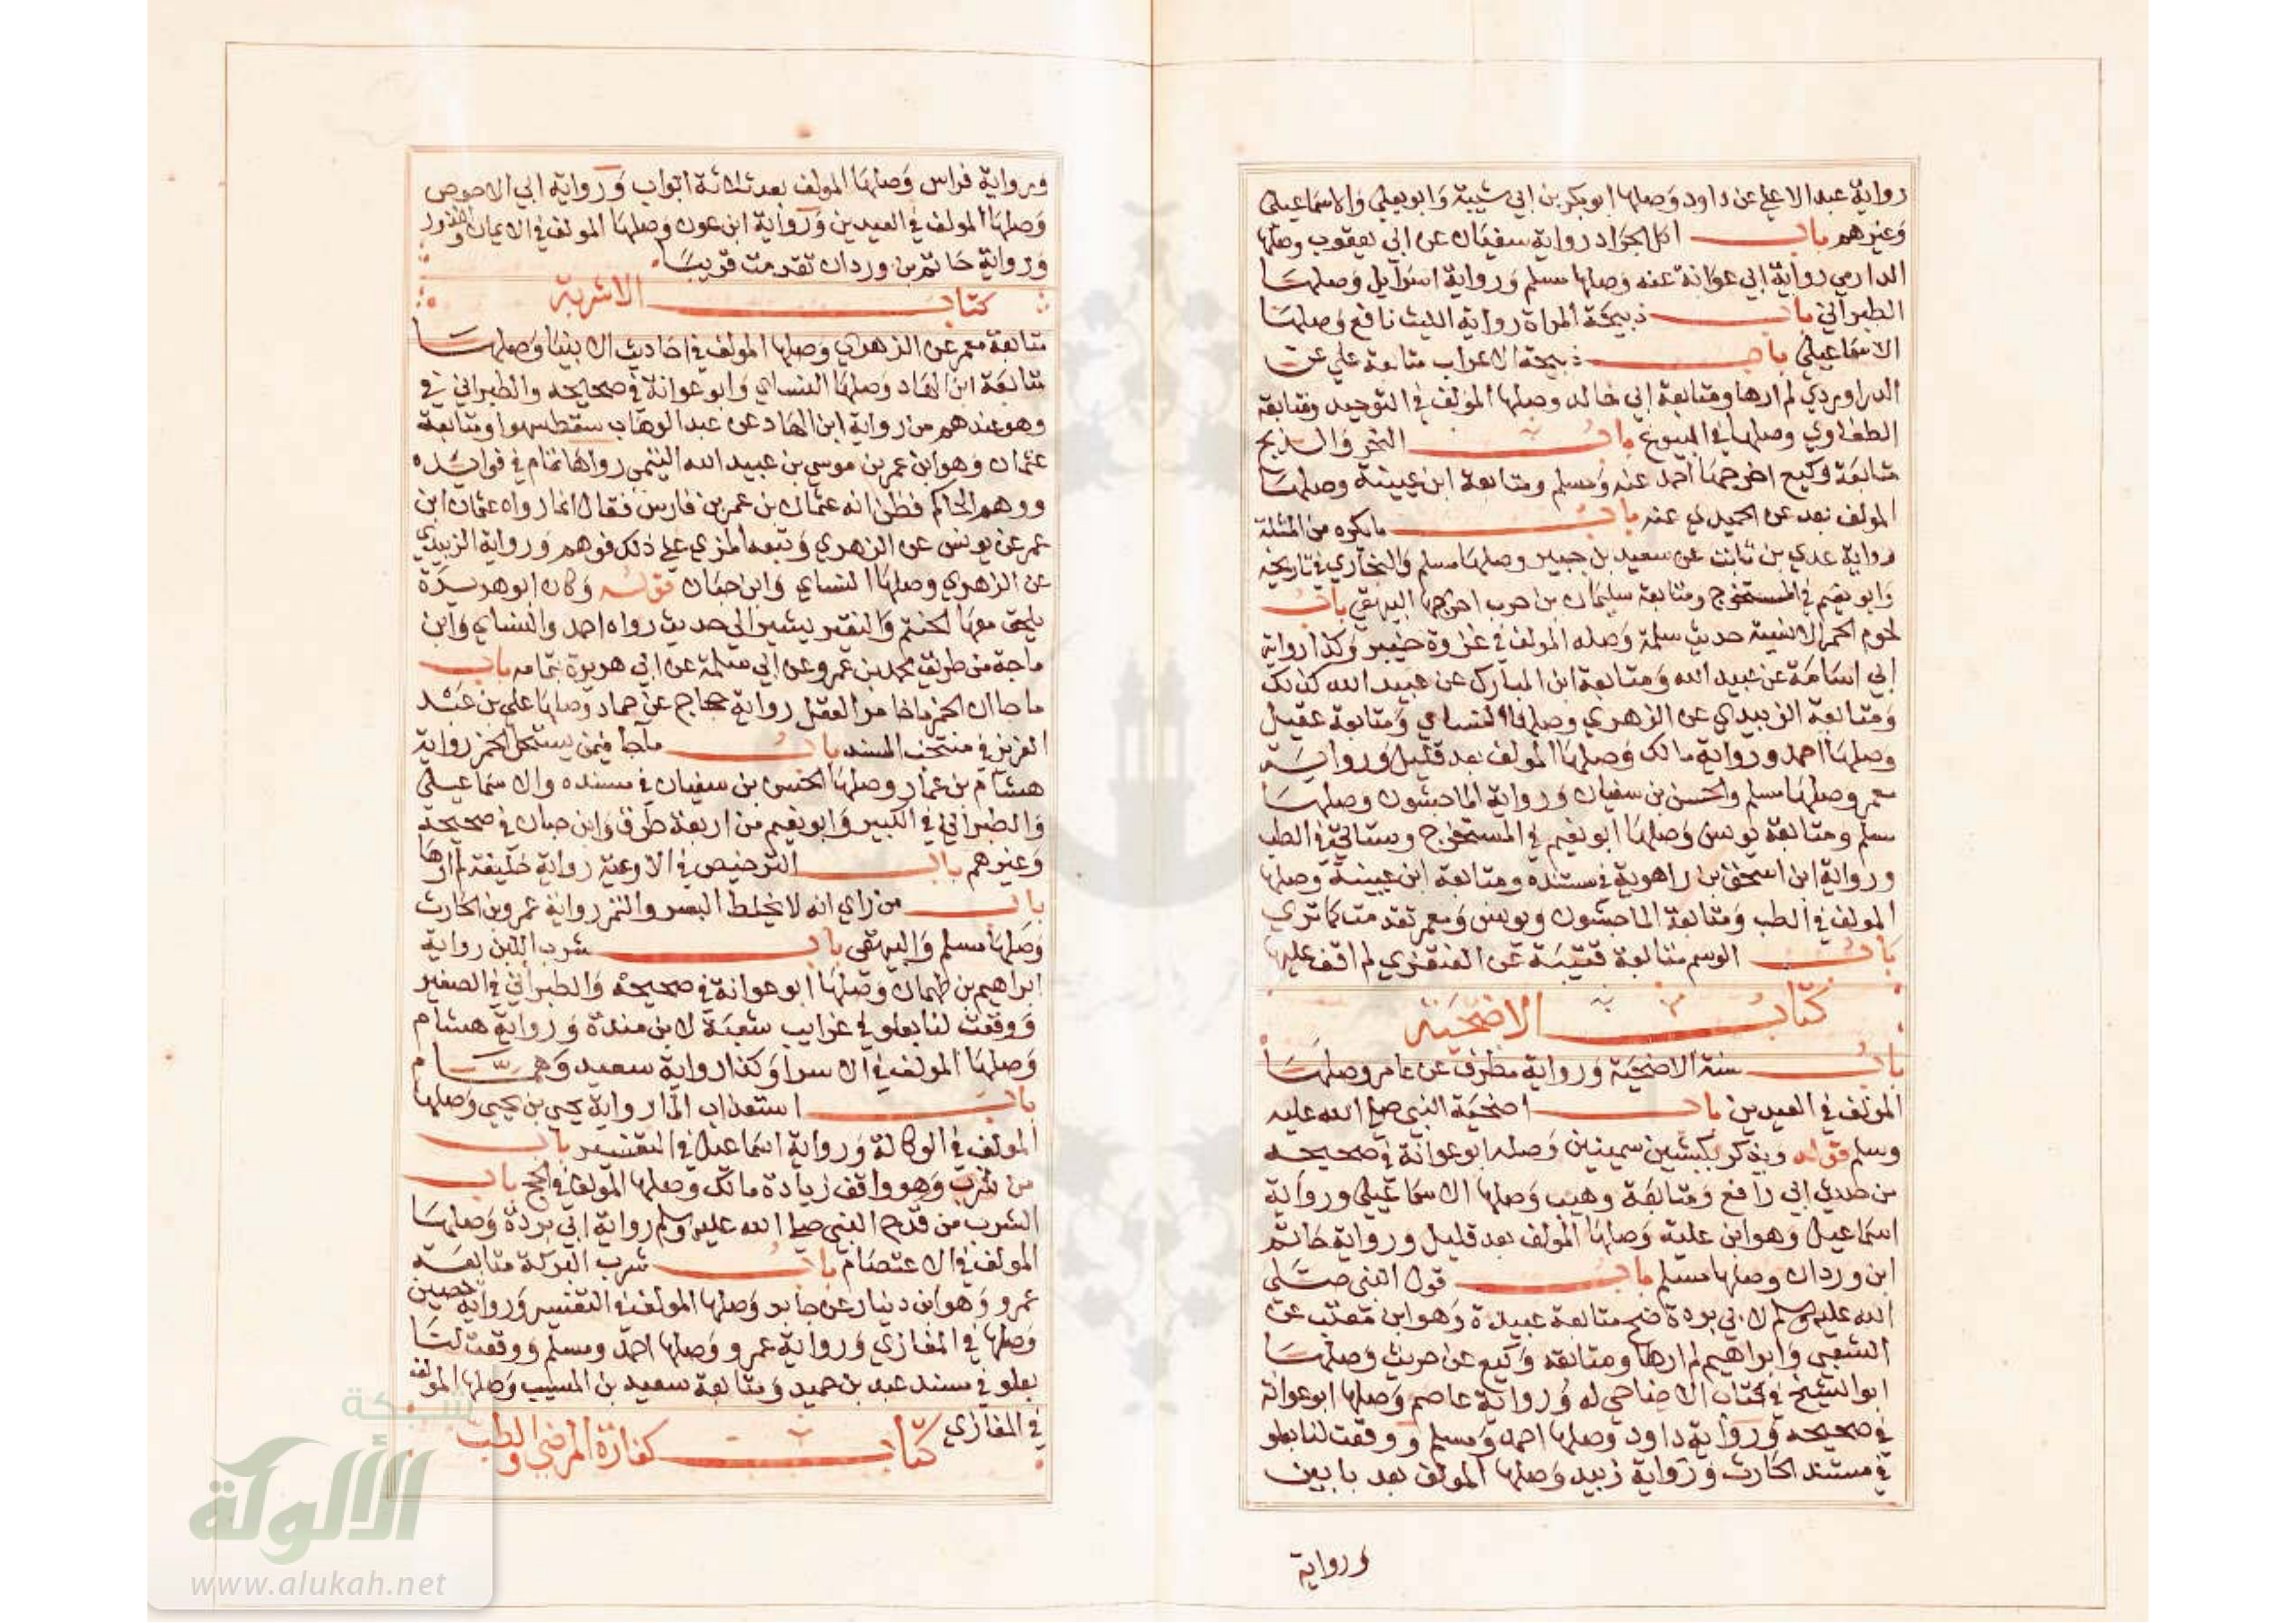 رواية عبد الاعلي عن داود وصلها ابو بكر بن ابي شيبة وابو يعلي والاسماعيلي
وغيرهم باب اكل الجراد رواية سفيان عن ابي يعقوب وصلها
الدارمي رواية ابي عوانة عنه وصلها مسلم ورواية اسرايل وصلها
الطبراني باب ذبيحة المراة رواية الليث نافع وصلها
الاسماعيلي باب ذبيحة الاعراب متابعة علي عن
الدراوردي لم ارها ومتابعة ابي خالد وصلها المولف في التوحيد ومتابعة
الطفاوي وصلها في البيوع باب النحر والذبح
متابعة وكيع اخرجها احمد عنه ومسلم ومتابعة ابن عيينة وصلها
المولف بعد عن الحميدي عنه باب ما يكره من المثلة
رواية عدي بن ثابت عن سعيد بن جبير وصلها مسلم والبخاري في تاريخه
وابو نعيم في المستخرج ومتابعة سليمان بن حرب اخرجها البيهقي باب
لحوم الحمر الانسية حديث سلمة وصله المولف في غزوة خيبر وكذا رواية
ابي اسامة عن عبيد الله ومتابعة ابن المبارك عن عبيد الله كذلك
ومتابعة الزبيدي عن الزهري وصلها النساي ومتابعة عقيل
وصلها احمد ورواية مالك وصلها المولف بعد قليل ورواية
معمر وصلها مسلم والحسن بن سفيان ورواية الماجشون وصلها
مسلم ومتابعة يونس وصلها ابو نعيم في المستخرج وستاتي في الطب
ورواية ابن اسحق بن راهوية في مسنده ومتابعة ابن عيينة وصلها
المولف في الطب ومتابعة الماجشون ويونس ومعمر تقدمت كما تري
باب الوسم متابعة قتيبة عن العنقزي لم اقف عليها
كتاب الاضحية
باب سنة الاضحية ورواية مطرف عن عامر وصلها
المولف في العيدين باب اضحية النبي صلي الله عليه
وسلم قوله ويذكر بكبشين سمينين وصله ابو عوانة في صحيحه
من طريق ابي رافع ومتابعة وهيب وصلها الاسماعيلي ورواية
اسماعيل وهو ابن علية وصلها المولف بعد قليل ورواية حاتم
ابن وردان وصلها مسلم باب قول النبي صلي
الله عليه وسلم لابي بردة ضح متابعة عبيدة وهو ابن معتب عن
الشعبي وابراهيم لم ارها ومتابعة وكيع عن حريث وصلها
ابو الشيخ في كتاب الاضاحي له ورواية عاصم وصلها ابو عوانة
في صحيحه ورواية داود وصلها احمد ومسلم ووقعت لنا بعلو
في مسند الحارث ورواية زبيد وصلها المولف بعد بابين
ورواية
ورواية فراس وصلها المولف بعد ثلاثة ابواب ورواية ابي الاحوص
وصلها المولف في العيدين ورواية ابن عون وصلها المولف في الايمان والنذور
ورواية حاتم بن وردان تقدمت قريبا
كتاب الاشربة
متابعة معمر عن الزهري وصلها المولف في احاديث الانبيا وصلها
متابعة ابن الهاد وصلها النساي وابو عوانة في صحيحه والطبراني في
وهو عندهم من رواية ابن الهاد عن عبد الوهاب سقط سهوا ومتابعة
عثمان وهو ابن عمر بن موسي بن عبيد الله التيمي رواها تمام في فوايده
ووهم الحاكم فظن انه عثمان بن عمر بن فارس فقال انما رواه عثمان ابن
عمر عن يونس عن الزهري وتبعه المزي علي ذلك فوهم ورواية الزبيدي
عن الزهري وصلها النساي وابن حبان قوله وكان ابو هريرة
يلحق معها الحنتم والنقير يشير الي حديث رواه احمد والنساي وابن
ماجة من طريق محمد بن عمرو عن ابي سلمة عن ابي هريرة بتمامه باب
ما جا ان الخمر ما خامر العقل رواية حجاج عن حماد وصلها علي بن عبد
العزيز في منتخب المسند باب ما جا فيمن يستحل الخمر رواية
هشام بن عمار وصلها الحسن بن سفيان في مسنده والاسماعيلي
والطبراني في الكبير وابو نعيم من اربعة طرق وابن حبان في صحيحه
وغيرهم باب الترخيص في الاوعية رواية خليفة لم ارها
باب من راي انه لا يخلط البسر والتمر رواية عمرو بن الحارث
وصلها مسلم والبيهقي باب شرب اللبن رواية
ابراهيم بن طهمان وصلها ابو عوانة في صحيحه والطبراني في الصغير
ووقعت لنا بعلو في غرايب شعبة لابن مندة ورواية هشام
وصلها المولف في الاسرا وكذا رواية سعيد وهمام
باب استعذاب الما رواية يحيي بن يحيي وصلها
المولف في الوكالة ورواية اسماعيل في التفسير باب
من شرب وهو واقف زيادة مالك وصلها المولف في الحج باب
الشرب من قدح النبي صلي الله عليه وسلم رواية ابي بردة وصلها
المولف في الاعتصام باب شرب البركة متابعة
عمرو وهو ابن دينار عن جابر وصلها المولف في التفسير ورواية حصين
وصلها في المغازي ورواية عمرو وصلها احمد ومسلم ووقعت لنا
بعلو في مسند عبد بن حميد ومتابعة سعيد بن المسيب وصلها المولف
في المغازي كتاب كفارة المرضي والطب
شبكة
الألوكة
www.alukah.net